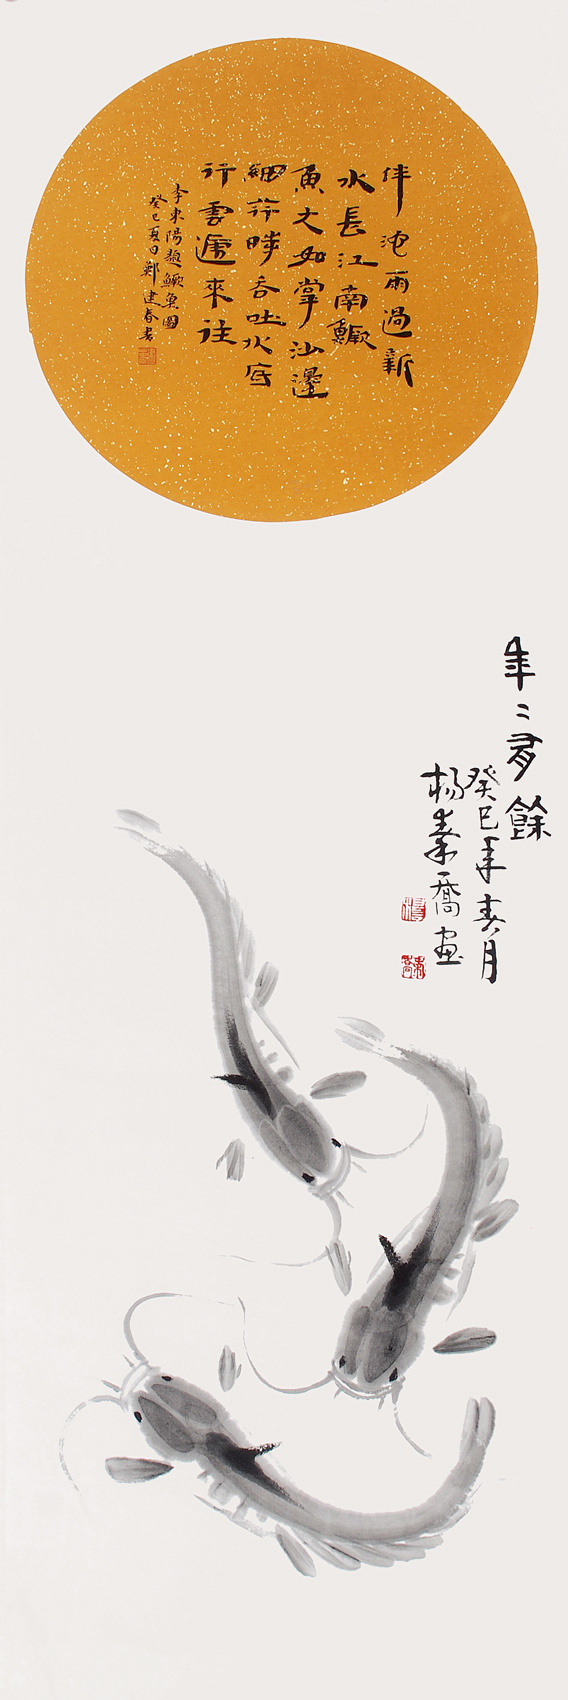 伴池雨過新
水長江南鱖
魚大如掌汕邊
細荇時吞吐水底
行雲遞來往
李東陽題鱖魚圖
癸巳夏日鄭建春書
年〻有餘
癸巳年春月
楊秦喬畫